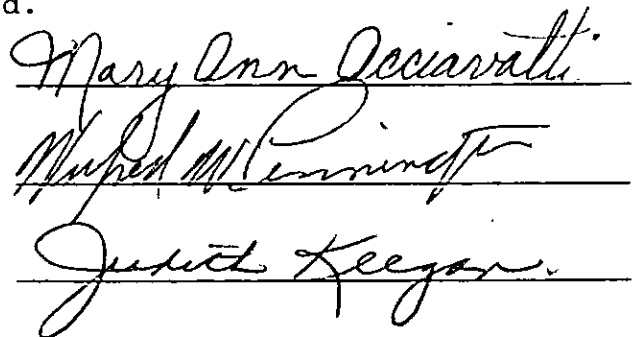 d.
Mary Ann Acciavatti
M. Pennington
Judith Keegan.